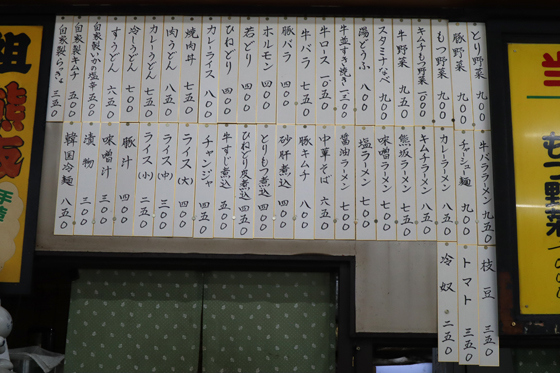 とり野菜 九〇〇
豚野菜 九〇〇
もつ野菜 九〇〇
キムチもつ野菜 一〇〇〇
牛野菜 九五〇
スタミナなべ 九〇〇
湯どうふ 八〇〇
牛並すき焼き 一三〇〇
牛ロース 一〇五〇
牛バラ 七五〇
豚バラ 四〇〇
ホルモン 四〇〇
若どり 四〇〇
ひねどり 四〇〇
カレーライス 八〇〇
焼肉丼 八五〇
肉うどん 八五〇
カレーうどん 七五〇
冷しうどん 七〇〇
すうどん 六五〇
自家製いかの塩辛 五五〇
自家製キムチ 五〇〇
自家製らっきょ 三五〇
牛バララーメン 九五〇
チャーシュー麺 九〇〇
カレーラーメン 八五〇
キムチラーメン 八五〇
熊坂ラーメン 八五〇
味噌ラーメン 七〇〇
塩ラーメン 七〇〇
醤油ラーメン 七〇〇
中華そば 六五〇
豚キムチ 八〇〇
砂肝煮込 四〇〇
とりもつ煮込 四五〇
ひねどり皮煮込 四五〇
牛すじ煮込 五五〇
チャンジャ 四五〇
ライス(大) 四〇〇
ライス(中) 三〇〇
ライス(小) 二五〇
豚汁 四〇〇
味噌汁 三〇〇
漬物 三〇〇
韓国冷麺 八五〇
枝豆 三五〇
トマト 三五〇
冷奴 二五〇
熊坂
もつ野菜